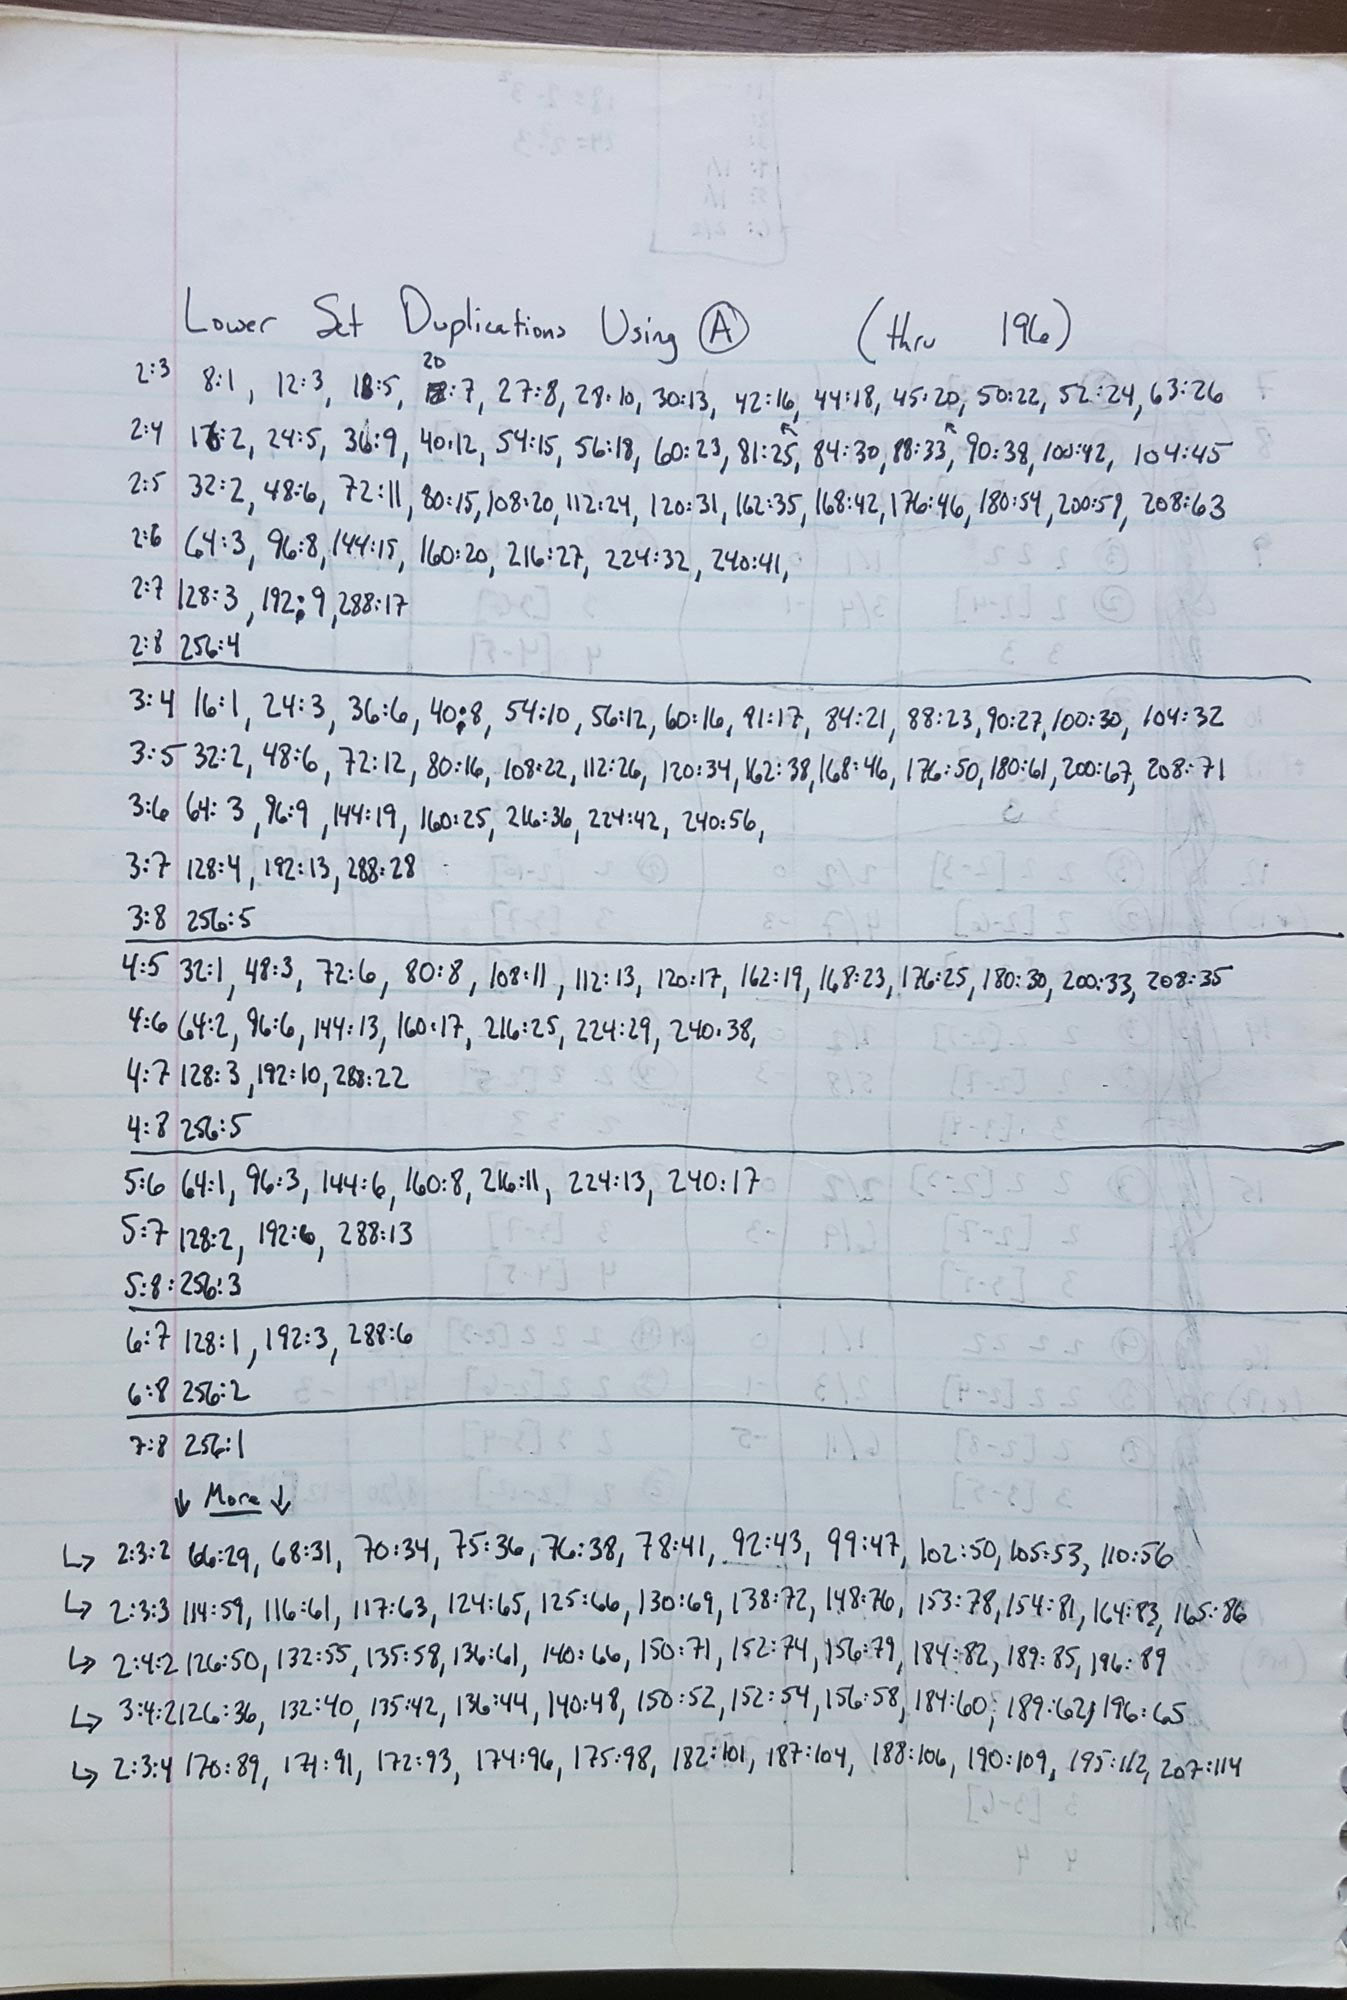 Lower Set Duplications Using Ⓐ (thru 196)
20
2:3 8:1, 12:3, 18:5, :7, 27:8, 28:10, 30:13, 42:16, 44:18, 45:20, 50:22, 52:24, 63:26
2:4 16:2, 24:5, 36:9, 40:12, 54:15, 56:18, 60:23, 81:25, 84:30, 88:33, 90:38, 100:42, 104:45
2:5 32:2, 48:6, 72:11, 80:15, 108:20, 112:24, 120:31, 162:35, 168:42, 176:46, 180:54, 200:59, 208:63
2:6 64:3, 96:8, 144:15, 160:20, 216:27, 224:32, 240:41,
2:7 128:3, 192:9, 288:17
2:8 256:4
3:4 16:1, 24:3, 36:6, 40:8, 54:10, 56:12, 60:16, 81:17, 84:21, 88:23, 90:27, 100:30, 104:32
3:5 32:2, 48:6, 72:12, 80:16, 108:22, 112:26, 120:34, 162:38, 168:46, 176:50, 180:61, 200:67, 208:71
3:6 64:3, 96:9, 144:19, 160:25, 216:36, 224:42, 240:56,
3:7 128:4, 192:13, 288:28
3:8 256:5
4:5 32:1, 48:3, 72:6, 80:8, 108:11, 112:13, 120:17, 162:19, 168:23, 176:25, 180:30, 200:33, 208:35
4:6 64:2, 96:6, 144:13, 160:17, 216:25, 224:29, 240:38,
4:7 128:3, 192:10, 288:22
4:8 256:5
5:6 64:1, 96:3, 144:6, 160:8, 216:11, 224:13, 240:17
5:7 128:2, 192:6, 288:13
5:8:256:3
6:7 128:1, 192:3, 288:6
6:8 256:2
7:8 256:1
↓ More ↓
↳ 2:3:2 66:29, 68:31, 70:34, 75:36, 76:38, 78:41, 92:43, 99:47, 102:50, 105:53, 110:56
↳ 2:3:3 114:59, 116:61, 117:63, 124:65, 125:66, 130:69, 138:72, 148:76, 153:78, 154:81, 164:83, 165:86
↳ 2:4:2 126:50, 132:55, 135:58, 136:61, 140:66, 150:71, 152:74, 156:79, 184:82, 189:85, 196:89
↳ 3:4:2 126:36, 132:40, 135:42, 136:44, 140:48, 150:52, 152:54, 156:58, 184:60, 189:62, 196:65
↳ 2:3:4 170:89, 171:91, 172:93, 174:96, 175:98, 182:101, 187:104, 188:106, 190:109, 195:112, 207:114